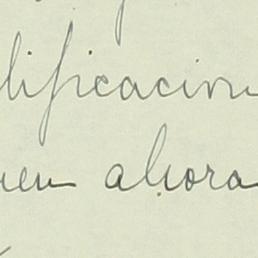 lificacion
uen ahora